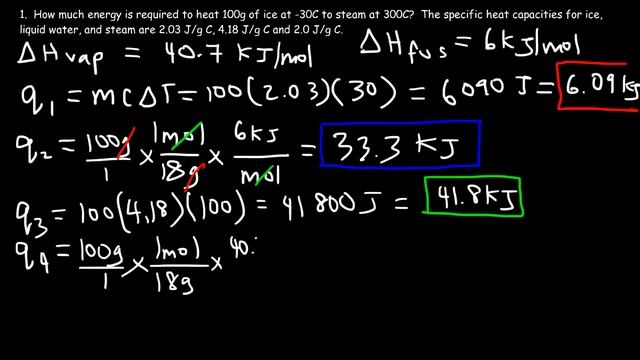 1. How much energy is required to heat 100g of ice at -30C to steam at 300C? The specific heat capacities for ice,
liquid water, and steam are 2.03 J/g C, 4.18 J/g C and 2.0 J/g C.
ΔHvap = 40.7 KJ/mol ΔHfus = 6KJ/mol
q1 = MCΔT = 100(2.03)(30) = 6090 J = 6.09 KJ
q2 = 100g/1 × 1mol/18g × 6KJ/mol = 33.3 KJ
q3 = 100(4.18)(100) = 41800J = 41.8KJ
q4 = 100g/1 × 1mol/18g × 40.